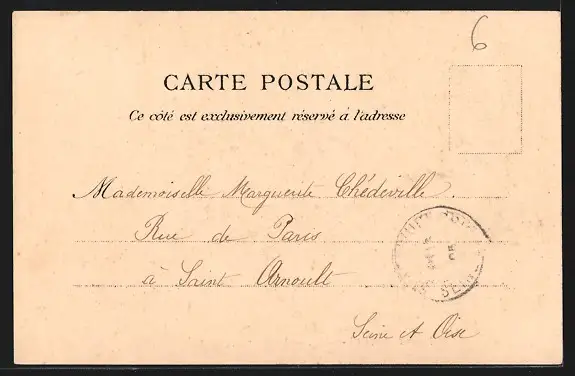 6
CARTE POSTALE
Ce côté est exclusivement réservé à l'adresse
Mademoiselle Marguerite Chédeville.
Rue de Paris
à Saint Arnoult
Seine et Oise